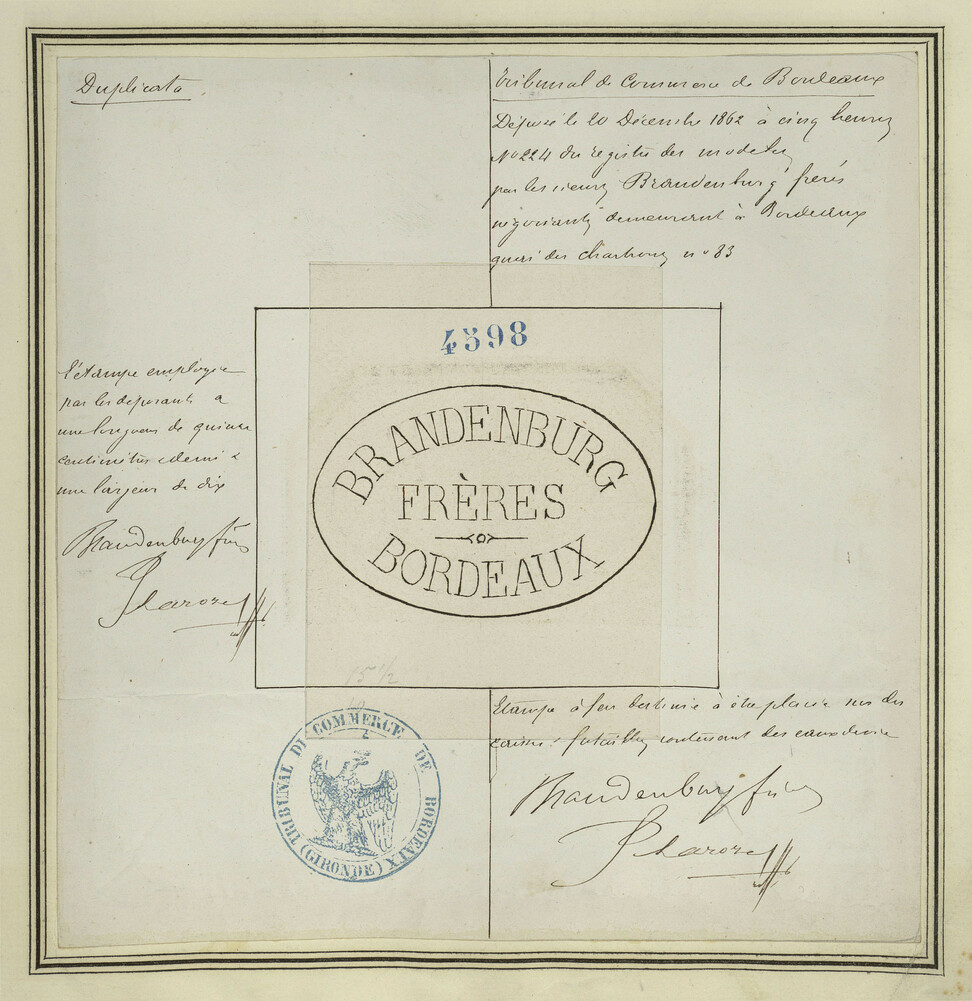 Duplicata.
Tribunal de Commerce de Bordeaux
Déposé le 20 Décembre 1862 à cinq heures
No 224 du registre des modeles
par les sieurs Brandenburg frères
négociants demeurant à Bordeaux
quai des Chartrons no 83
4598
l'étampe employée
par les déposants a
une longueur de quinze
centimètres & demi &
une largeur de dix
Brandenburg frères
BRANDENBURG
FRÈRES
BORDEAUX
15 1/2
Etampe à feu destinée à être placée sur des
caisses & futailles contenant des eaux de vie
Brandenburg frères
TRIBUNAL DE COMMERCE DE BORDEAUX
(GIRONDE)